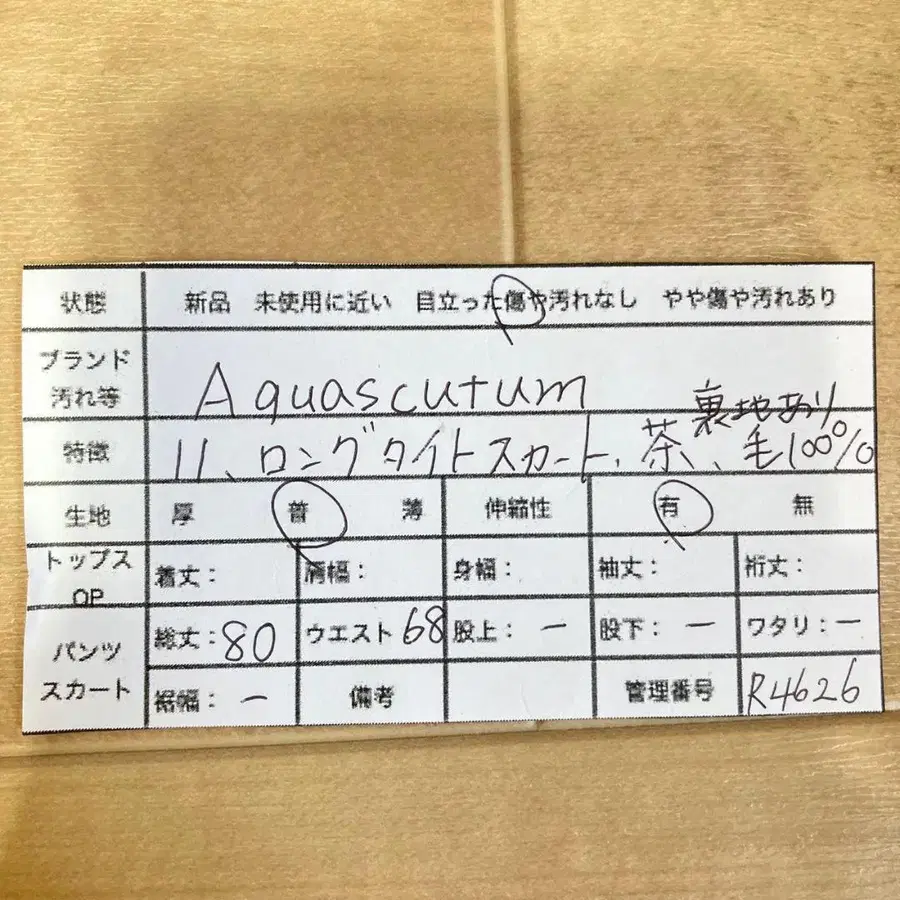 状態 新品 未使用に近い 目立った傷や汚れなし やや傷や汚れあり
ブランド
汚れ等 Aquascutum
裏地あり
特徴 11、ロングタイトスカート、茶、毛100%
生地 厚 普 薄 伸縮性 有 無
トップス
OP 着丈: 肩幅: 身幅: 袖丈: 裄丈:
パンツ
スカート 総丈:80 ウエスト68 股上:ー 股下:ー ワタリ:ー
裾幅:ー 備考 管理番号 R4626